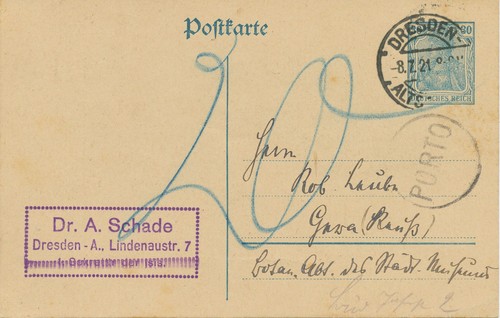 Postkarte
DRESDEN-
-8.7.21
ALTST
30
DEUTSCHES REICH
PORTO
20
Herrn
Rob. Laube
Gera (Reuß)
Botan. Abt. des Städt. Museums
Dr. A. Schade
Dresden - A., Lindenaustr. 7